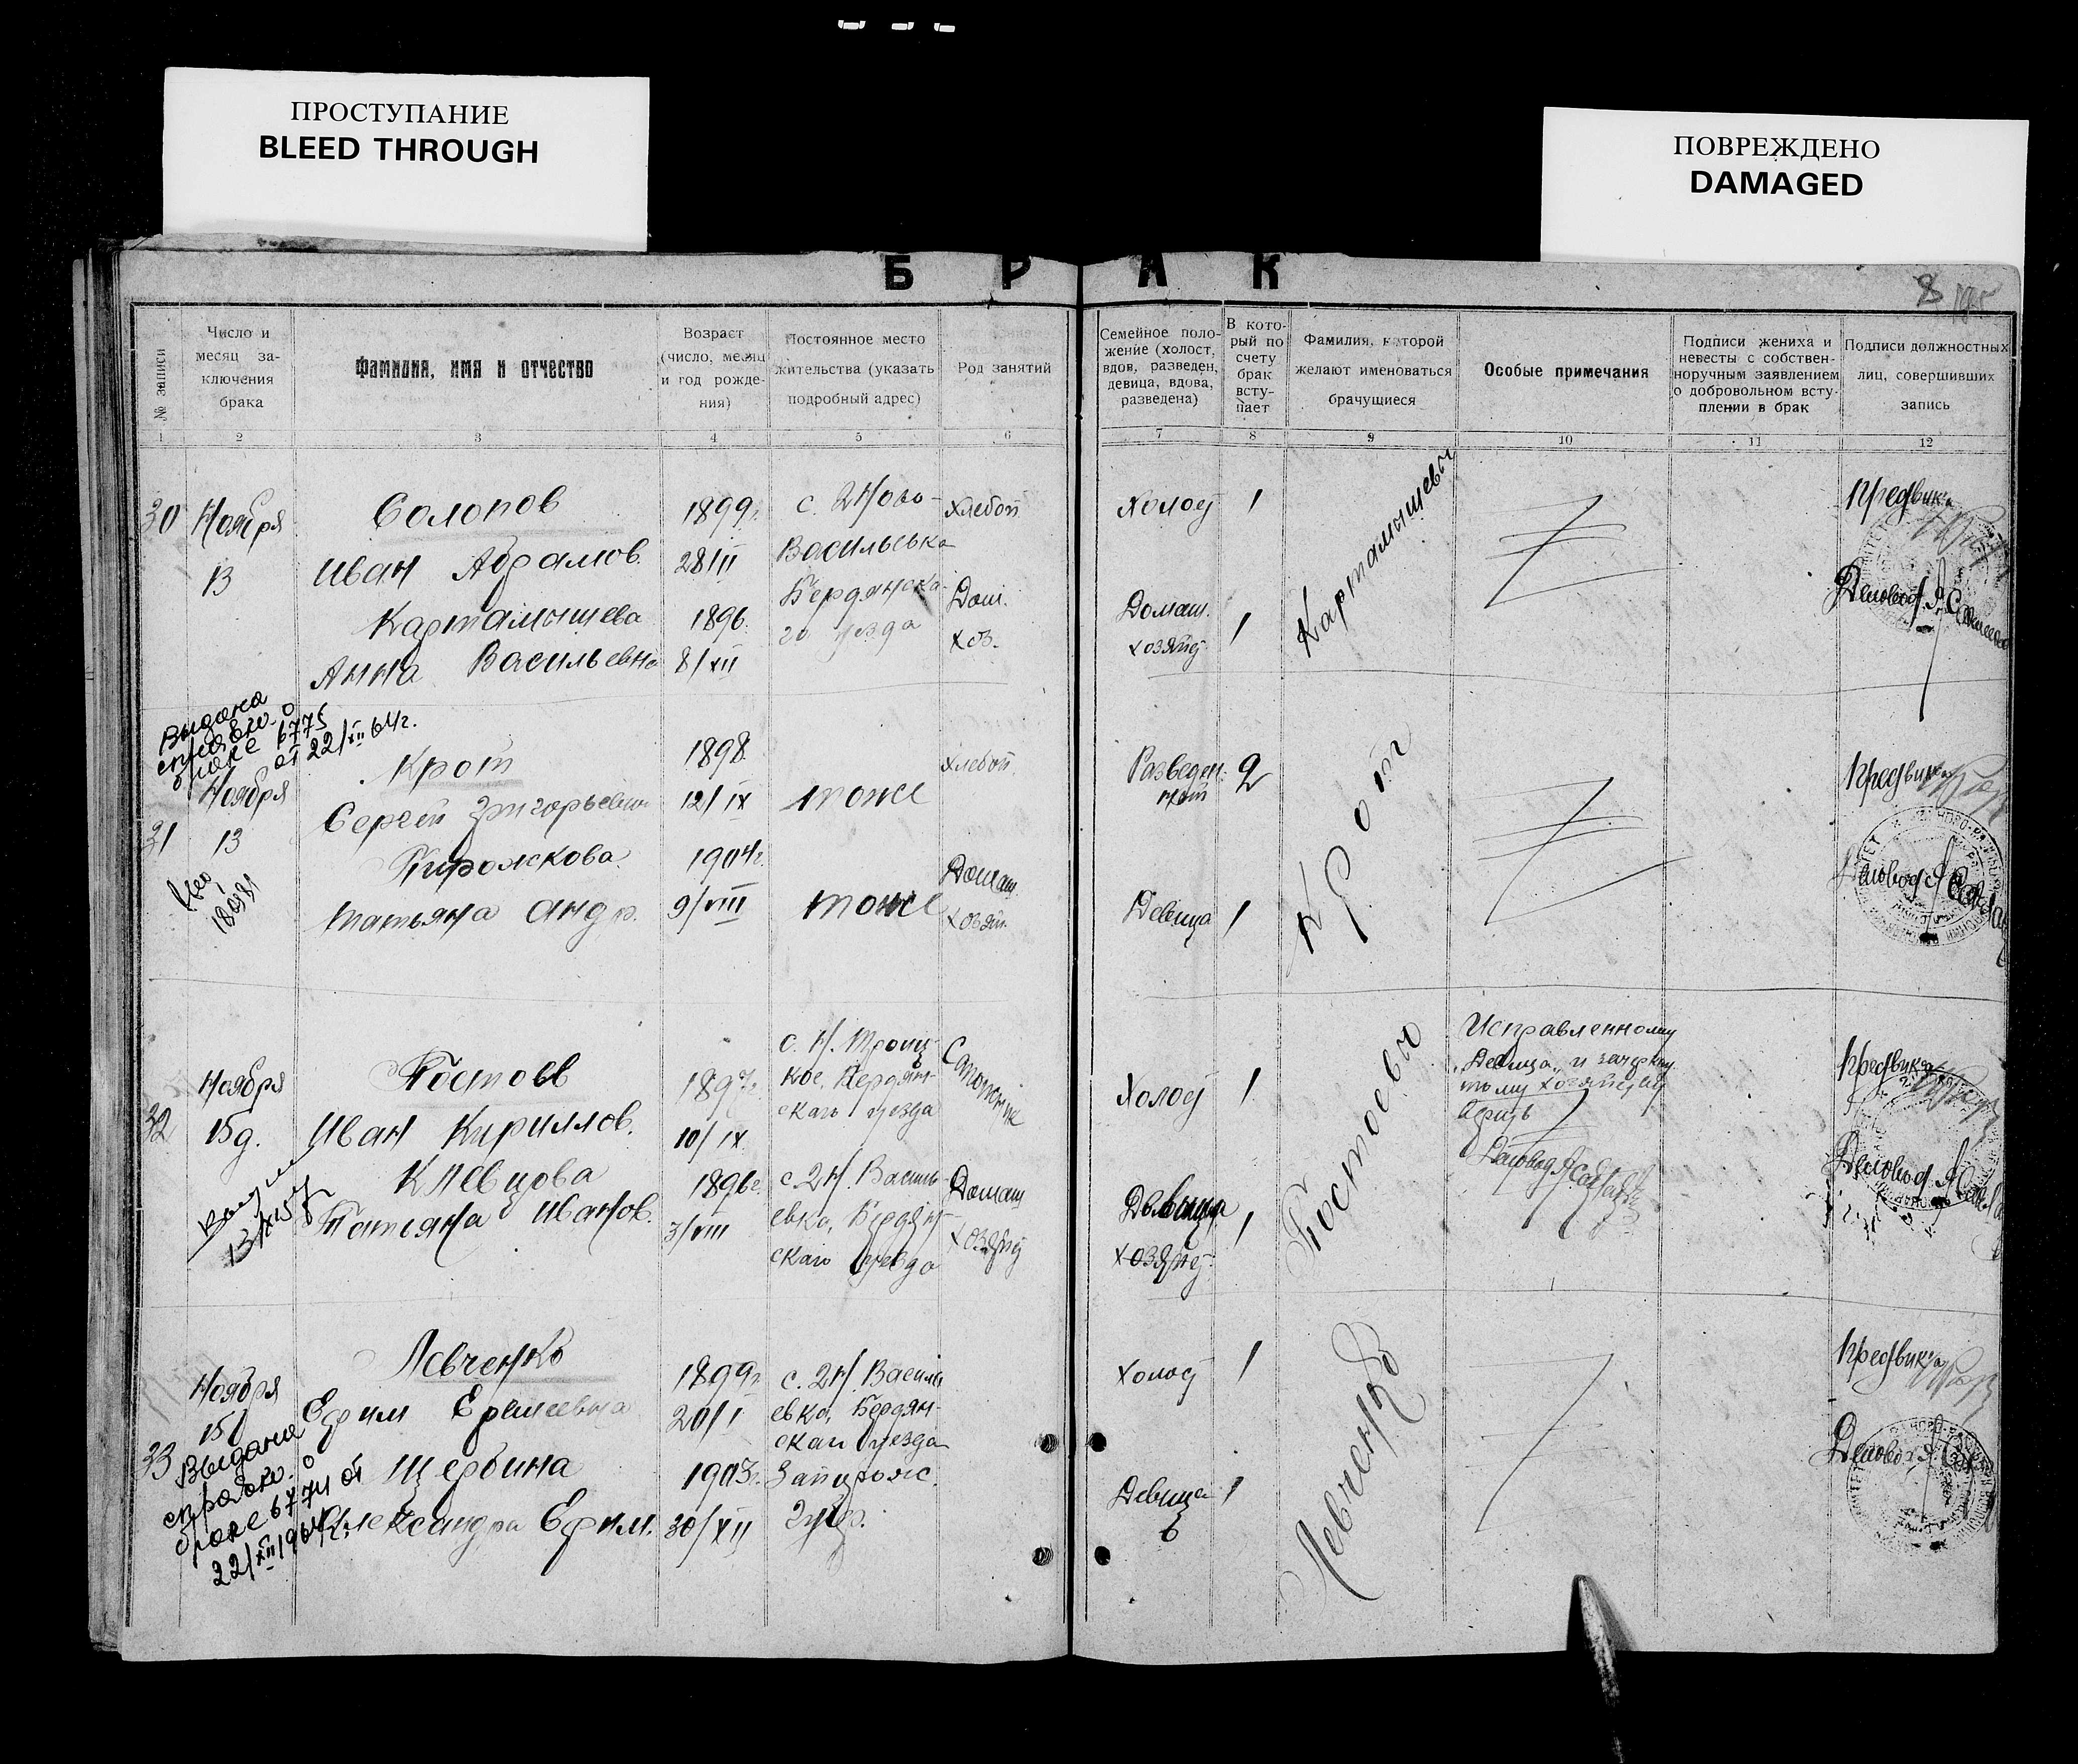 ПРОСТУПАНИЕ
BLEED THROUGH
ПОВРЕЖДЕНО
DAMAGED
БРАК
8
№ записи
Число и
месяц за-
ключения
брака
Фамилия, имя и отчество
Возраст
(число, месяц
и год рожде-
ния)
Постоянное место
жительства (указать
подробный адрес)
Род занятий
Семейное поло-
жение (холост,
вдов, разведен,
девица, вдова,
разведена)
В кото-
рый по
счету
брак
всту-
пает
Фамилия, которой
желают именоваться
брачущиеся
Особые примечания
Подписи жениха и
невесты с собствен-
норучным заявлением
о добровольном всту-
плении в брак
Подписи должностных
лиц, совершивших
запись
1 2 3 4 5 6 7 8 9 10 11 12
30
Ноября
13
Солопов
Иван Абрамов.
Картамышева
Анна Васильевна
1899г.
28/II
1896.
8/XII
с. 2 Ново-
Васильевка
Бердянска-
го уезда
Хлебоп
Дом.
хоз.
Холост
Домаш.
хозяйс
1
1
Картамышевы
Предвика
Деловод.
Выдана
справка о
браке 6775
от 22/XII 64г.
31
Ноября
13
Крот
Сергей Григорьевич
Татьяна Андр.
1898.
12/IX
1904г.
9/VIII
тоже
тоже
хлебоп.
Домаш.
хозяй.
Разведен
Девица
2
1
Крот
Предвика
Деловод
32
Ноября
15д.
13/IX 57
Костовъ
Иван Кириллов.
Клевцова
Татьяна Иванов.
1897г.
10/IX
1896г.
3/VIII
с. Н. Троиц-
кое, Бердян-
скаго уезда
с. 2 Н. Василь
евка, Бердян-
скаго уезда
Сапожник
Домаш
хозяйс
Холост
Девица
хозяйс.
1
1
Исправленному
„Девица„ и зачеркну
тому хозяйст
Деловод
Предвика
Деловод.
33
Ноября
15
Выдана
справка о
браке 6774 от
22/XII 1964г.
Левченко
Ефим
Щербина
Александра Ефим.
1899г
20/I
1903г.
30/XII
с. 2 Н. Василь
евка, Бердян-
скаго уезда
Запорож.
Губ.
Холост
Девица
1
1
Левченко
Предвика
Деловод